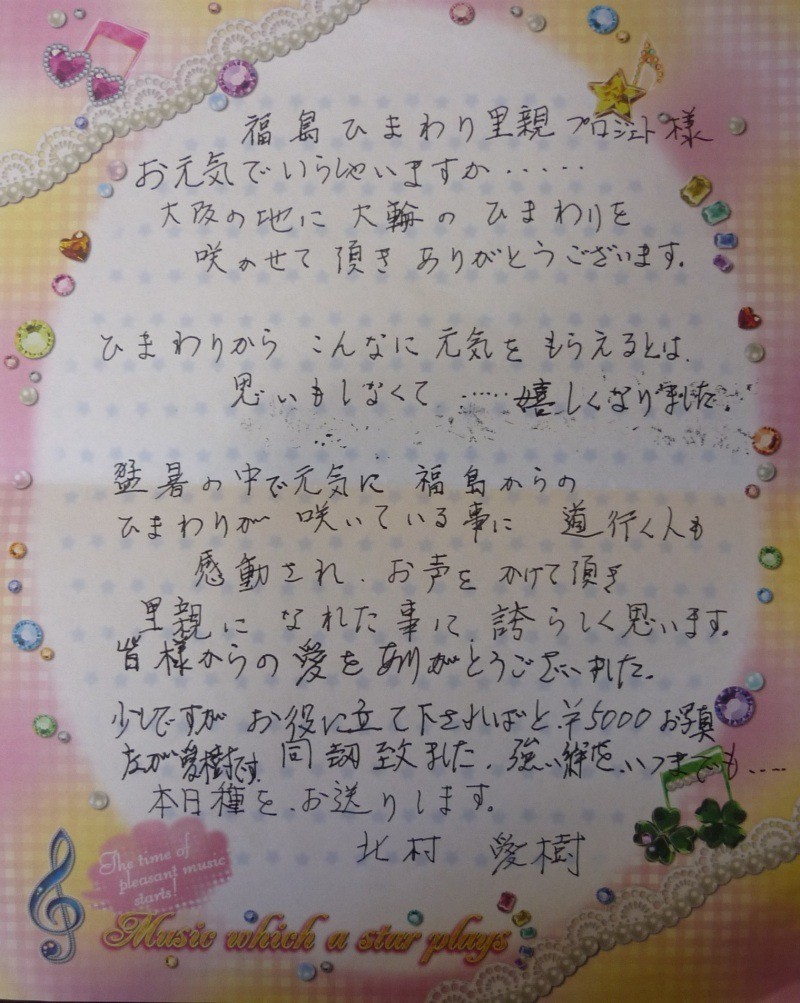 福島ひまわり里親プロジェクト様
お元気でいらしゃいますか・・・・・
大阪の地に大輪のひまわりを
咲かせて頂きありがとうございます。
ひまわりからこんなに元気をもらえるとは、
思いもしなくて……嬉しくなりました。
猛暑の中で元気に福島からの
ひまわりが咲いている事に道行く人も
感動され、お声をかけて頂き
里親になれた事に、誇らしく思います。
皆様からの愛をありがとうございました。
少しですがお役に立て下さればと、¥5000 お写真
左が愛樹です。同封致ました。強い絆を、いつまでも....
本日種を、お送りします。
北村 愛樹
The time of
pleasant music
starts!
Music which a star plays